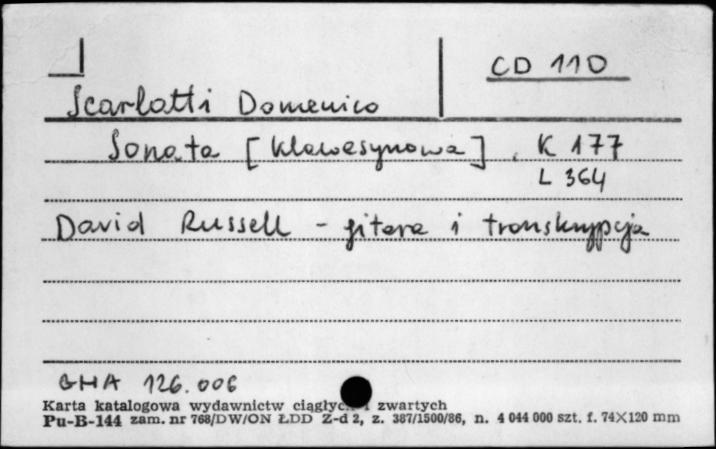 CD 110
Scarlatti Domenico
Sonata [klawesynowa], K 177
L 364
David Russell - gitara i transkrypcja
GHA 126.006
Karta katalogowa wydawnictw ciągłych i zwartych
Pu-B-144 zam. nr 768/DW/ON ŁDD Z-d 2, z. 387/1500/86, n. 4 044 000 szt. f. 74×120 mm